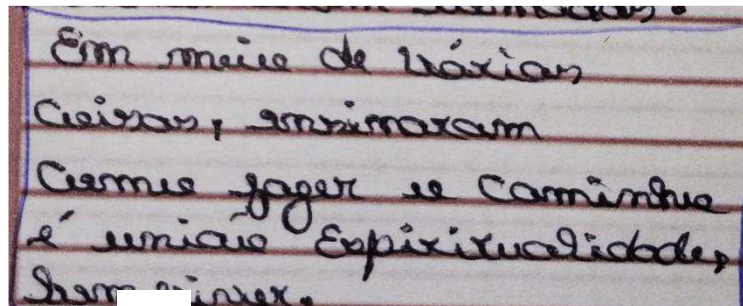 Em meio de várias
Coisas, ensinaram
Como fazer o caminho
é união Espiritualidade,